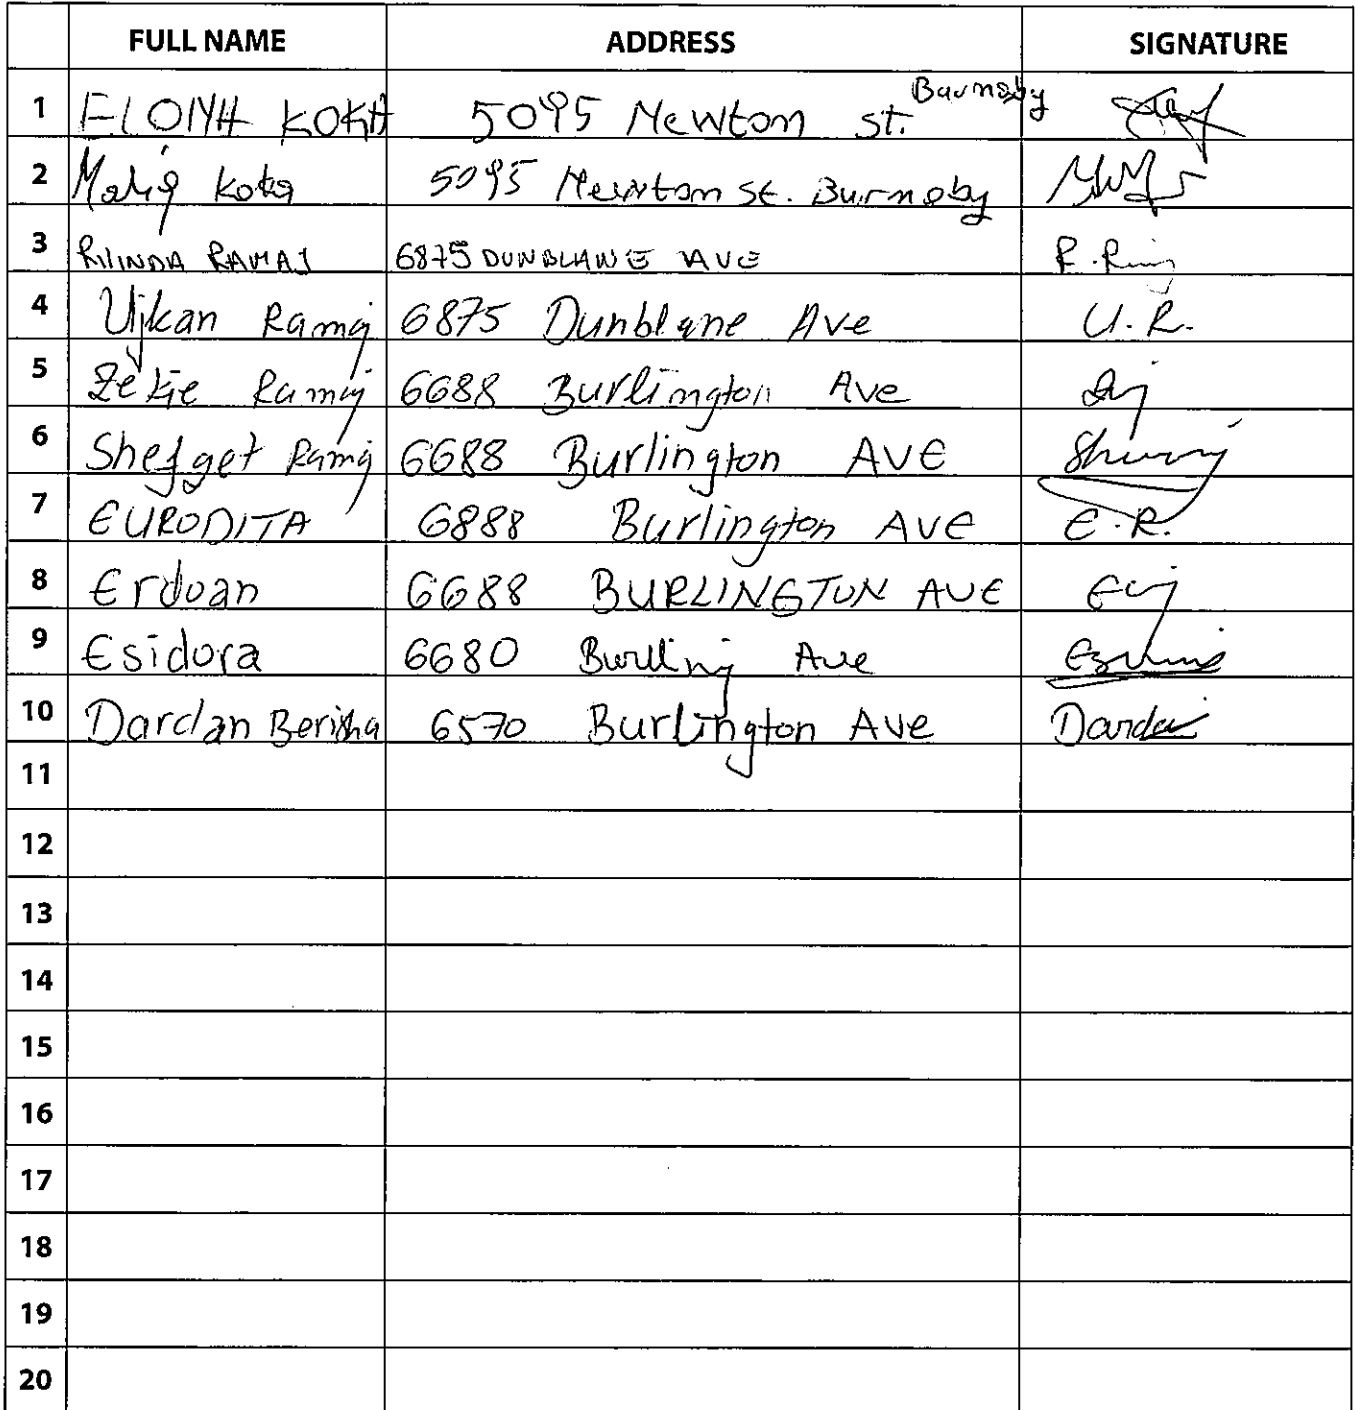 FULL NAME ADDRESS SIGNATURE
1 KOKA 5095 Newton st. Burnaby
2 Maliq Koka 5095 Newton St. Burnaby
3 RILINDA RAMAJ 6875 DUNBLANE AVE R.
4 Ujkan Ramaj 6875 Dunblane Ave U.R.
5 Zekie Ramaj 6688 Burlington Ave
6 Shefget Ramaj 6688 Burlington AVE
7 EURODITA 6888 Burlington AVE E.R.
8 Erdoan 6688 BURLINGTON AVE
9 Esidora 6680 Ave
10 Dardan Berisha 6570 Burlington Ave
11
12
13
14
15
16
17
18
19
20